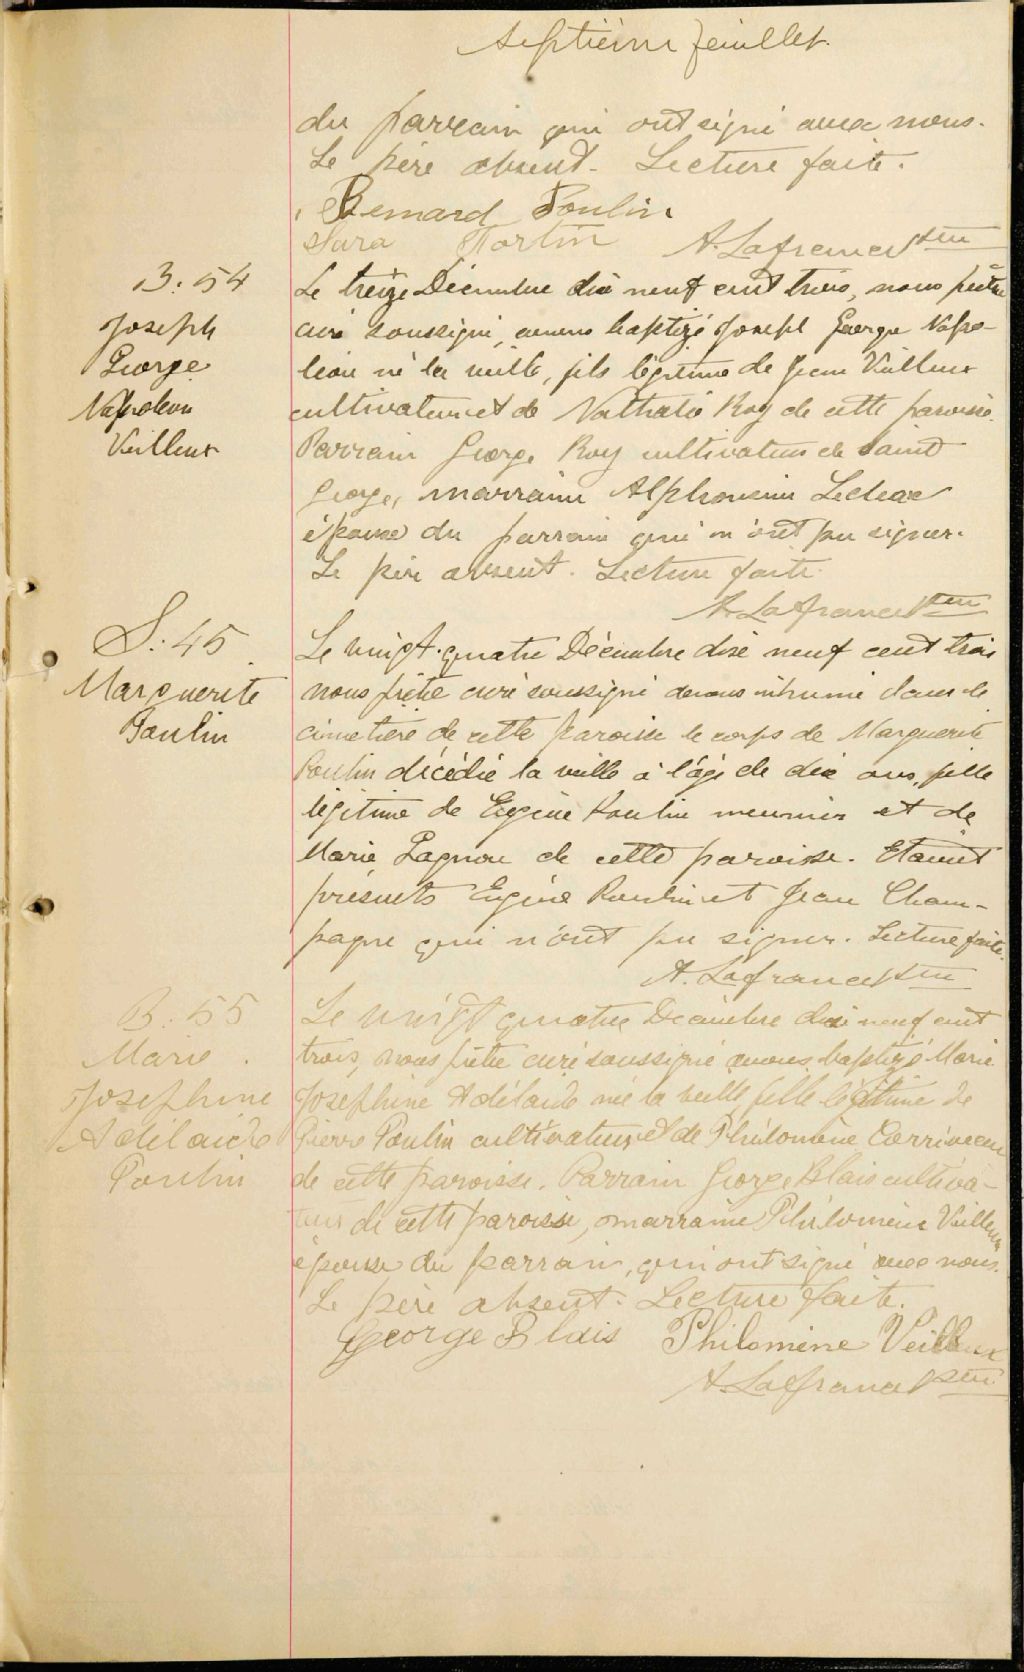 Septième feuillet.
du parrain qui ont signé avec nous.
Le père absent. Lecture faite.
Bernard Poulin
Sara Fortin A. Lafrance Ptre
B. 54
Joseph
George
Napoleon
Veilleux
Le treize Décembre dix neuf cent trois, nous prêtre
curé soussigné, avons baptizé Joseph George Napo-
léon né la veille, fils légitime de Jean Veilleux
cultivateur et de Nathalie Roy de cette paroisse.
Parrain George Roy cultivateur de Saint
George, marraine Alphonsine
épouse du parrain qui n'ont pu signer.
Le père absent. Lecture faite.
A. Lafrance Ptre
S. 45
Marguerite
Poulin
Le vingt-quatre Décembre dix neuf cent trois
nous prêtre curé soussigné avons inhumé dans le
cimetière de cette paroisse le corps de Marguerite
Poulin décédée la veille à l'âge de dix ans, fille
légitime de Eugène Poulin meunier et de
Marie Pagnou de cette paroisse. Etaient
présents Eugène Poulin et Jean Cham-
pagne qui n'ont pu signer. Lecture faite.
A. Lafrance Ptre
B. 55
Marie
Josephine
Adélaide
Poulin
Le vingt quatre Decembre dix neuf cent
trois, nous prêtre curé soussigné avons baptizé Marie
Josephine Adélaide née la veille, fille légitime de
Pierre Poulin cultivateur et de Philomène Carriveau
de cette paroisse. Parrain George Blais cultiva-
teur de cette paroisse, marraine Philomène Veilleux
épouse du parrain, qui ont signé avec nous.
Le père absent. Lecture faite.
George Blais Philomine Veilleux
A. Lafrance Ptre